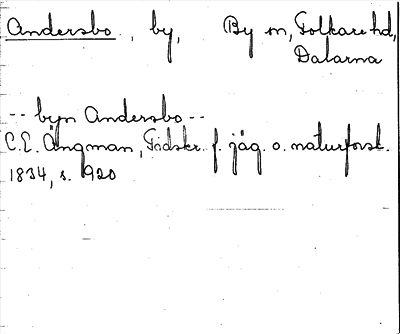 Andersbo, by, By sn, Folkare hd,
Dalarna
-- byn Andersbo --
C.E. Ångman, Tidskr. f. jäg. o. naturforsk.
1834, s. 920